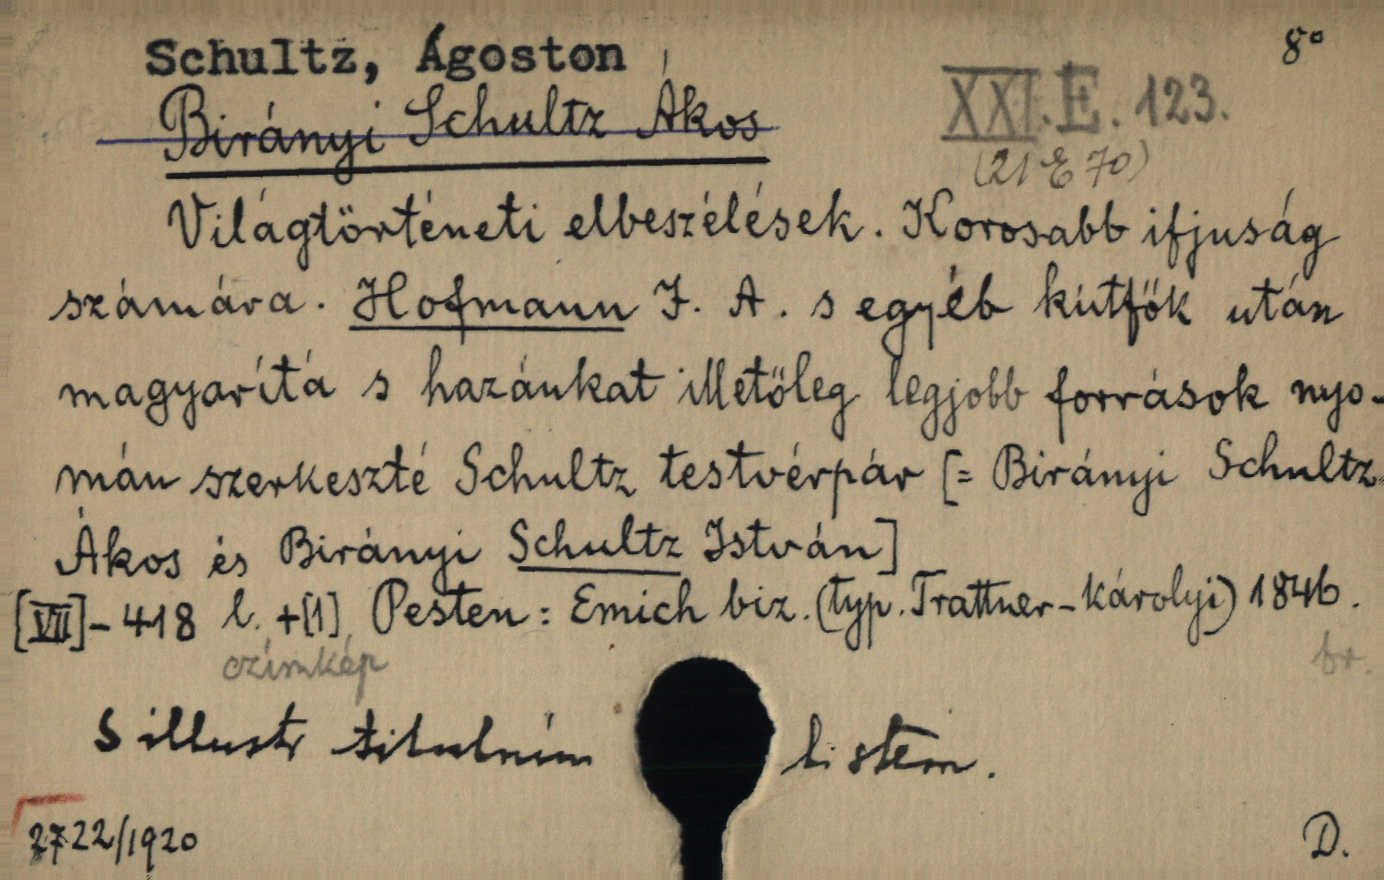 Schultz, Ágoston
8°
Birányi Schultz Ákos
XXI. E. 123.
(21 E 70)
Világtörténeti elbeszélések. Korosabb ifjuság
számára. Hofmann F. A. s egyéb kútfök után
magyarítá s hazánkat illetöleg legjobb források nyo-
mán szerkeszté Schultz testvérpár [= Birányi Schultz
Ákos és Birányi Schultz István]
[VII]-418 l. +[1] Pesten: Emich biz. (typ. Trattner-károlyi) 1846.
czímkép
br.
S illustr titulním listem.
2722/1920
D.